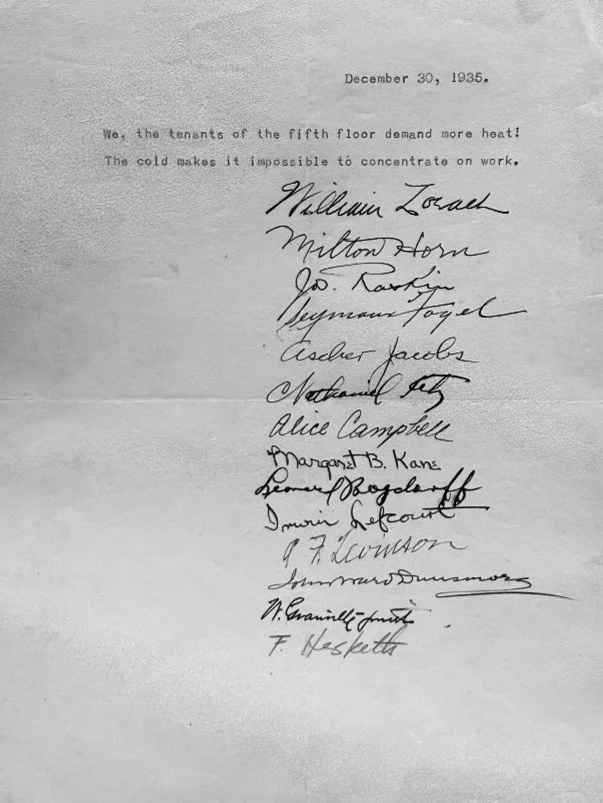 December 30, 1935.
We, the tenants of the fifth floor demand more heat!
The cold makes it impossible to concentrate on work.
William Zorach
Milton Horn
Jos. Raskin
Seymour Fogel
Ascher Jacobs
Nathaniel
Alice Campbell
Margaret B. Kane
Leonard Bogdanoff
Irwin Lefcourt
F. Levinson
John Ward Dunsmore
W. Granville-Smith
F. Hesketh